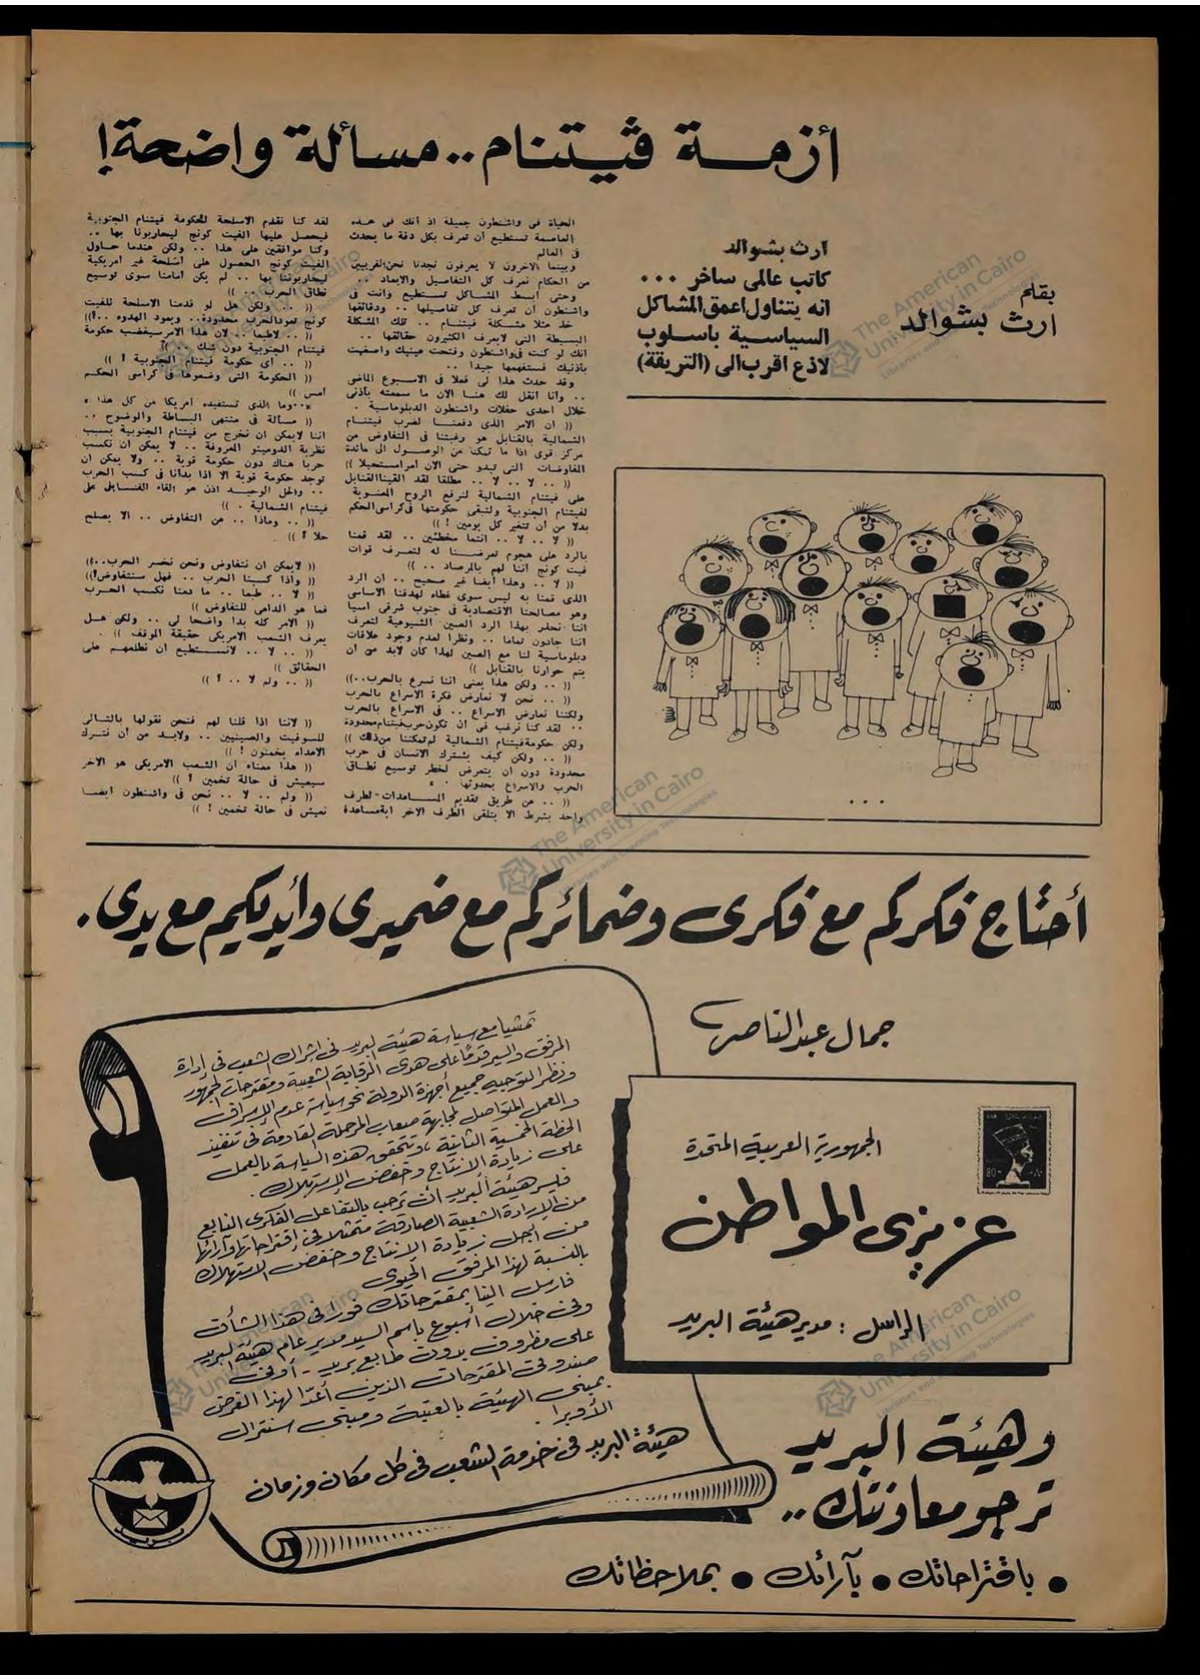 أزمة ڤيتنام .. مسألة واضحة!
بقلم
ارث بشوالد
ارث بشوالد
كاتب عالمى ساخر ...
انه يتناول اعمق المشاكل
السياسية باسلوب
لاذع اقرب الى (التريقة)
الحياة فى واشنطون جميلة اذ أنك فى هذه
العاصمة تستطيع أن تعرف بكل دقة ما يحدث
فى العالم
وبينما الاخرون لا يعرفون تجدنا نحن القريبين
من الحكام نعرف كل التفاصيل والابعاد ..
وحتى أبسط المشاكل تستطيع وأنت فى
واشنطون أن تعرف كل تفاصيلها .. ودقائقها
خذ مثلا مشكلة فيتنام .. تلك المشكلة
البسيطة التى لايعرف الكثيرون حقائقها ..
انك لو كنت فى واشنطون وفتحت عينيك واصغيت
بأذنيك فستفهمها جيدا ..
وقد حدث هذا لى فعلا فى الاسبوع الماضى
.. وأنا انقل لك هنا الان ما سمعته بأذنى
خلال احدى حفلات واشنطون الدبلوماسية .
(( ان الامر الذى دفعنا لضرب فيتنام
الشمالية بالقنابل هو رغبتنا فى التفاوض من
مركز قوى اذا ما تمكنا من الوصول الى مائدة
المفاوضات التى تبدو حتى الان أمرا مستحيلا ))
(( .. لا .. لا .. مطلقا لقد القينا القنابل
على فيتنام الشمالية لنرفع الروح المعنوية
لفيتنام الجنوبية ولتبقى حكومتها فى كراسى الحكم
بدلا من أن تتغير كل يومين ! ))
(( لا .. لا .. انتما مخطئين .. لقد قمنا
بالرد على هجوم تعرضنا له لتعرف قوات
فيت كونج اننا لهم بالمرصاد .. ))
(( لا .. وهذا أيضا غير صحيح .. ان الرد
الذى قمنا به ليس سوى غطاء لهدفنا الاساسى
وهو مصالحنا الاقتصادية فى جنوب شرقى اسيا
اننا نحذر بهذا الرد الصين الشيوعية لتعرف
اننا جادون تماما .. ونظرا لعدم وجود علاقات
دبلوماسية لنا مع الصين لهذا كان لابد من ان
يتم حوارنا بالقنابل ))
(( .. ولكن هذا يعنى اننا نسرع بالحرب.. ))
(( .. نحن لا نعارض فكرة الاسراع بالحرب
ولكننا نعارض الاسراع .. فى الاسراع بالحرب
.. لقد كنا نرغب فى ان تكون حرب فيتنام محدودة
ولكن حكومة فيتنام الشمالية لم تمكننا من ذلك ))
(( .. ولكن كيف يشترك الانسان فى حرب
محدودة دون أن يتعرض لخطر توسيع نطاق
الحرب والاسراع بحدوثها
(( .. عن طريق تقديم المساعدات لطرف
واحد بشرط الا يتلقى الطرف الاخر أية مساعدة
لقد كنا نقدم الاسلحة لحكومة فيتنام الجنوبية
فيحصل عليها الفيت كونج ليحاربونا بها ..
وكنا موافقين على هذا .. ولكن عندما حاول
الفيت كونج الحصول على أسلحة غير امريكية
ليحاربوننا بها .. لم يكن أمامنا سوى توسيع
نطاق الحرب .. ))
(( .. ولكن هل لو قدمنا الاسلحة للفيت
كونج تعود الحرب محدودة.. ويعود الهدوء ..؟))
(( .. لا طبعا .. لان هذا الامر سيغضب حكومة
فيتنام الجنوبية دون شك .. ))
(( .. أى حكومة فيتنام الجنوبية ! ))
(( الحكومة التى وضعوها فى كراسى الحكم
أمس ))
.. وما الذى تستفيده أمريكا من كل هذا
(( مسألة فى منتهى البساطة والوضوح ..
اننا لايمكن ان نخرج من فيتنام الجنوبية بسبب
نظرية الدومينو المعروفة .. لا يمكن ان نكسب
حربا هناك دون حكومة قوية .. ولا يمكن ان
توجد حكومة قوية الا اذا بدأنا فى كسب الحرب
.. والحل الوحيد اذن هو القاء القنابل على
فيتنام الشمالية . ))
(( .. وماذا .. عن التفاوض .. الا يصلح
حلا ؟ ))
(( لايمكن ان نتفاوض ونحن نخسر الحرب..))
(( واذا كسبنا الحرب .. فهل سنتفاوض؟))
(( لا .. طبعا .. ما دمنا نكسب الحرب
فما هو الداعى للتفاوض ))
(( الامر كله بدا واضحا لى .. ولكن هل
يعرف الشعب الامريكى حقيقة الموقف )) .
(( .. لا .. لانستطيع ان نطلعهم على
الحقائق ))
(( .. ولم لا .. ؟ ))
(( لاننا اذا قلنا لهم فنحن نقولها بالتالى
للسوفيت والصينيين .. ولابد من أن نترك
الاعداء يخمنون ! ))
(( هذا معناه أن الشعب الامريكى هو الاخر
سيعيش فى حالة تخمين ؟ ))
(( ولم .. لا .. نحن فى واشنطون ايضا
نعيش فى حالة تخمين ! ))
...
أحتاج فكركم مع فكرى وضمائركم مع ضميرى وأيديكم مع يدى .
جمال عبد الناصر
الجمهورية العربية المتحدة
80
عزيزى المواطن
الراسل : مدير هيئة البريد
تمشيا مع سياسة هيئة البريد فى اشراك الشعب فى إدارة
المرفق والسير قدمًا على هدى الرقابة الشعبية ومقترحات الجمهور
ونظرا لتوجيه جميع أجهزة الدولة نحو سياسة عدم الإسراف
والعمل المتواصل لمجابهة صعاب المرحلة القادمة فى تنفيذ
الخطة الخمسية الثانية ، وتتحقق هذه السياسة بالعمل
على زيادة الانتاج وخفض الإستهلاك .
فليسر هيئة البريد أن ترحب بالتفاعل الفكرى النابع
من الإرادة الشعبية الصادقة متمثلا فى إقتراحاتها وآرائها
من أجل زيادة الإنتاج وخفض الاستهلاك
بالنسبة لهذا المرفق الحيوى
فارسل الينا بمقترحاتك فورا فى هذا الشأن
وفى خلال أسبوع باسم السيد مدير عام هيئة البريد
على مظروف بدون طابع بريد - أو فى
صندوقى المقترحات الذين أعدّا لهذا الغرض
بمبنى الهيئة بالعتبة ومبنى سنترال
الأوبرا .
هيئة البريد فى خدمة الشعب فى كل مكان وزمان
بريد
وهيئة البريد
ترجو معاونتك ..
● باقتراحاتك ● بآرائك ● بملاحظاتك
The American University in Cairo
Libraries and Learning Technologies